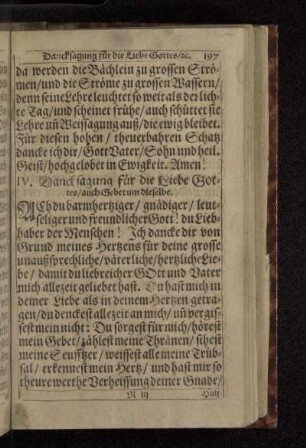 Dancksagung für die Liebe Gottes/ꝛc. 197
da werden die Bächlein zu grossen Strö-
men/und die Ströme zu grossen Wassern/
denn seine Lehre leuchtet so weit als der lich-
te Tag/und scheinet frühe/auch schüttet sie
Lehre uñ Weissagung auß/die ewig bleibet.
Für diesen hohen/ theuerbahren Schatz
dancke ich dir/Gott Vater/Sohn und heil.
Geist/hochgelobet in Ewigkeit. Amen!
IV. Dancksagung für die Liebe Got-
tes/auch Gebet um dieselbe.
Ach du barmhertziger/ gnädiger/ leut-
seliger und freundlicher Gott! du Lieb-
haber der Menschen! Ich dancke dir von
Grund meines Hertzens für deine grosse
unaußsprechliche/väterliche/hertzliche Lie-
be/ damit du liebreicher GOtt und Vater
mich allezeit geliebet hast. Du hast mich in
deiner Liebe als in deinem Hertzen getra-
gen/du denckest allezeit an mich/uñ vergis-
sest mein nicht: Du sorgest für mich/hörest
mein Gebet/zählest meine Thränen/ sihest
meine Seufftzer/ weissest alle meine Trüb-
sal/ erkennest mein Hertz/ und hast mir so
theure werthe Verheissung deiner Gnade/
N iij